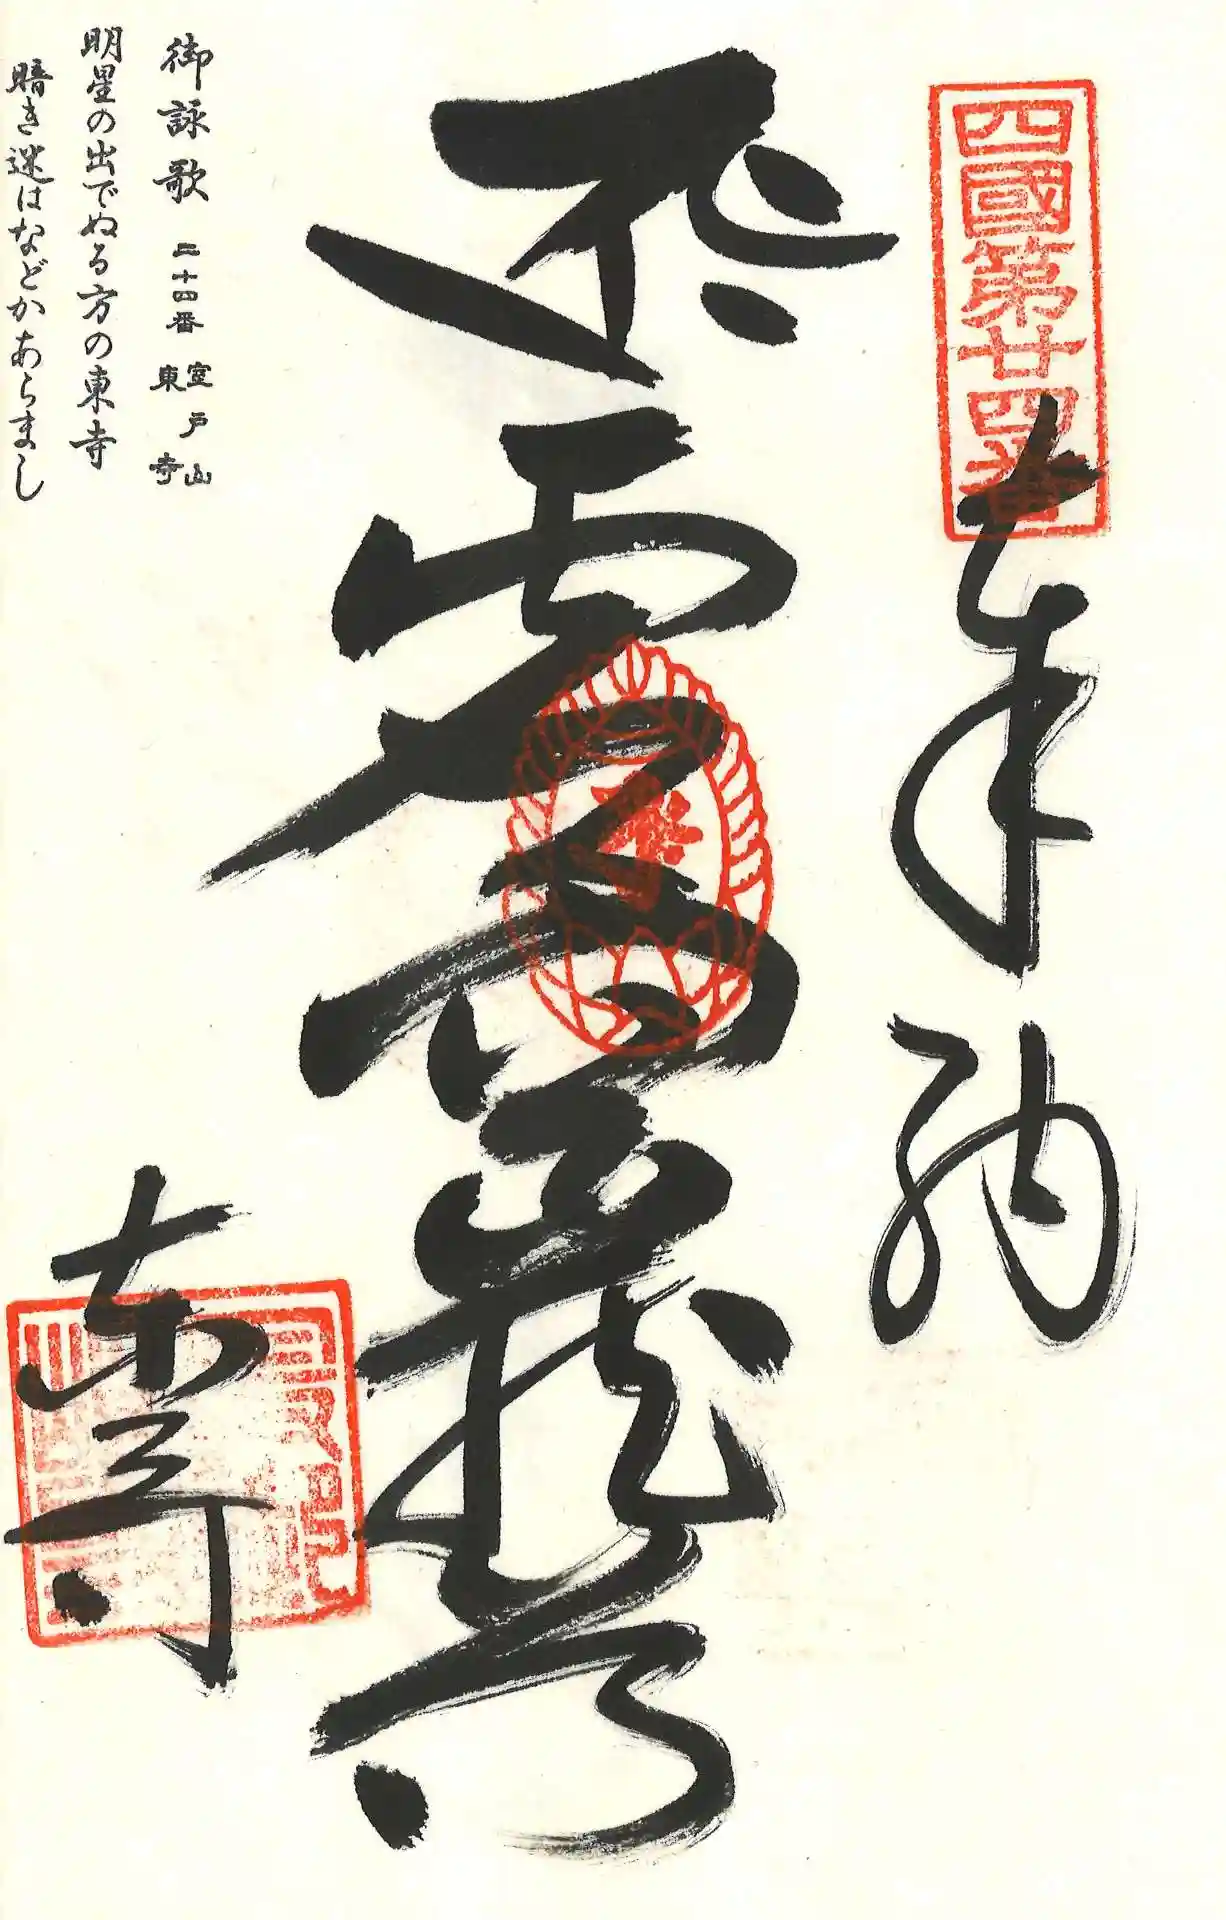 四國第廿四番
奉納
虚空蔵
東寺
御詠歌 二十四番 室戸山
東寺
明星の出でぬる方の東寺
暗き迷はなどかあらまし